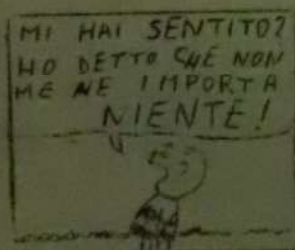 MI HAI SENTITO?
HO DETTO CHE NON
ME NE IMPORTA
NIENTE!